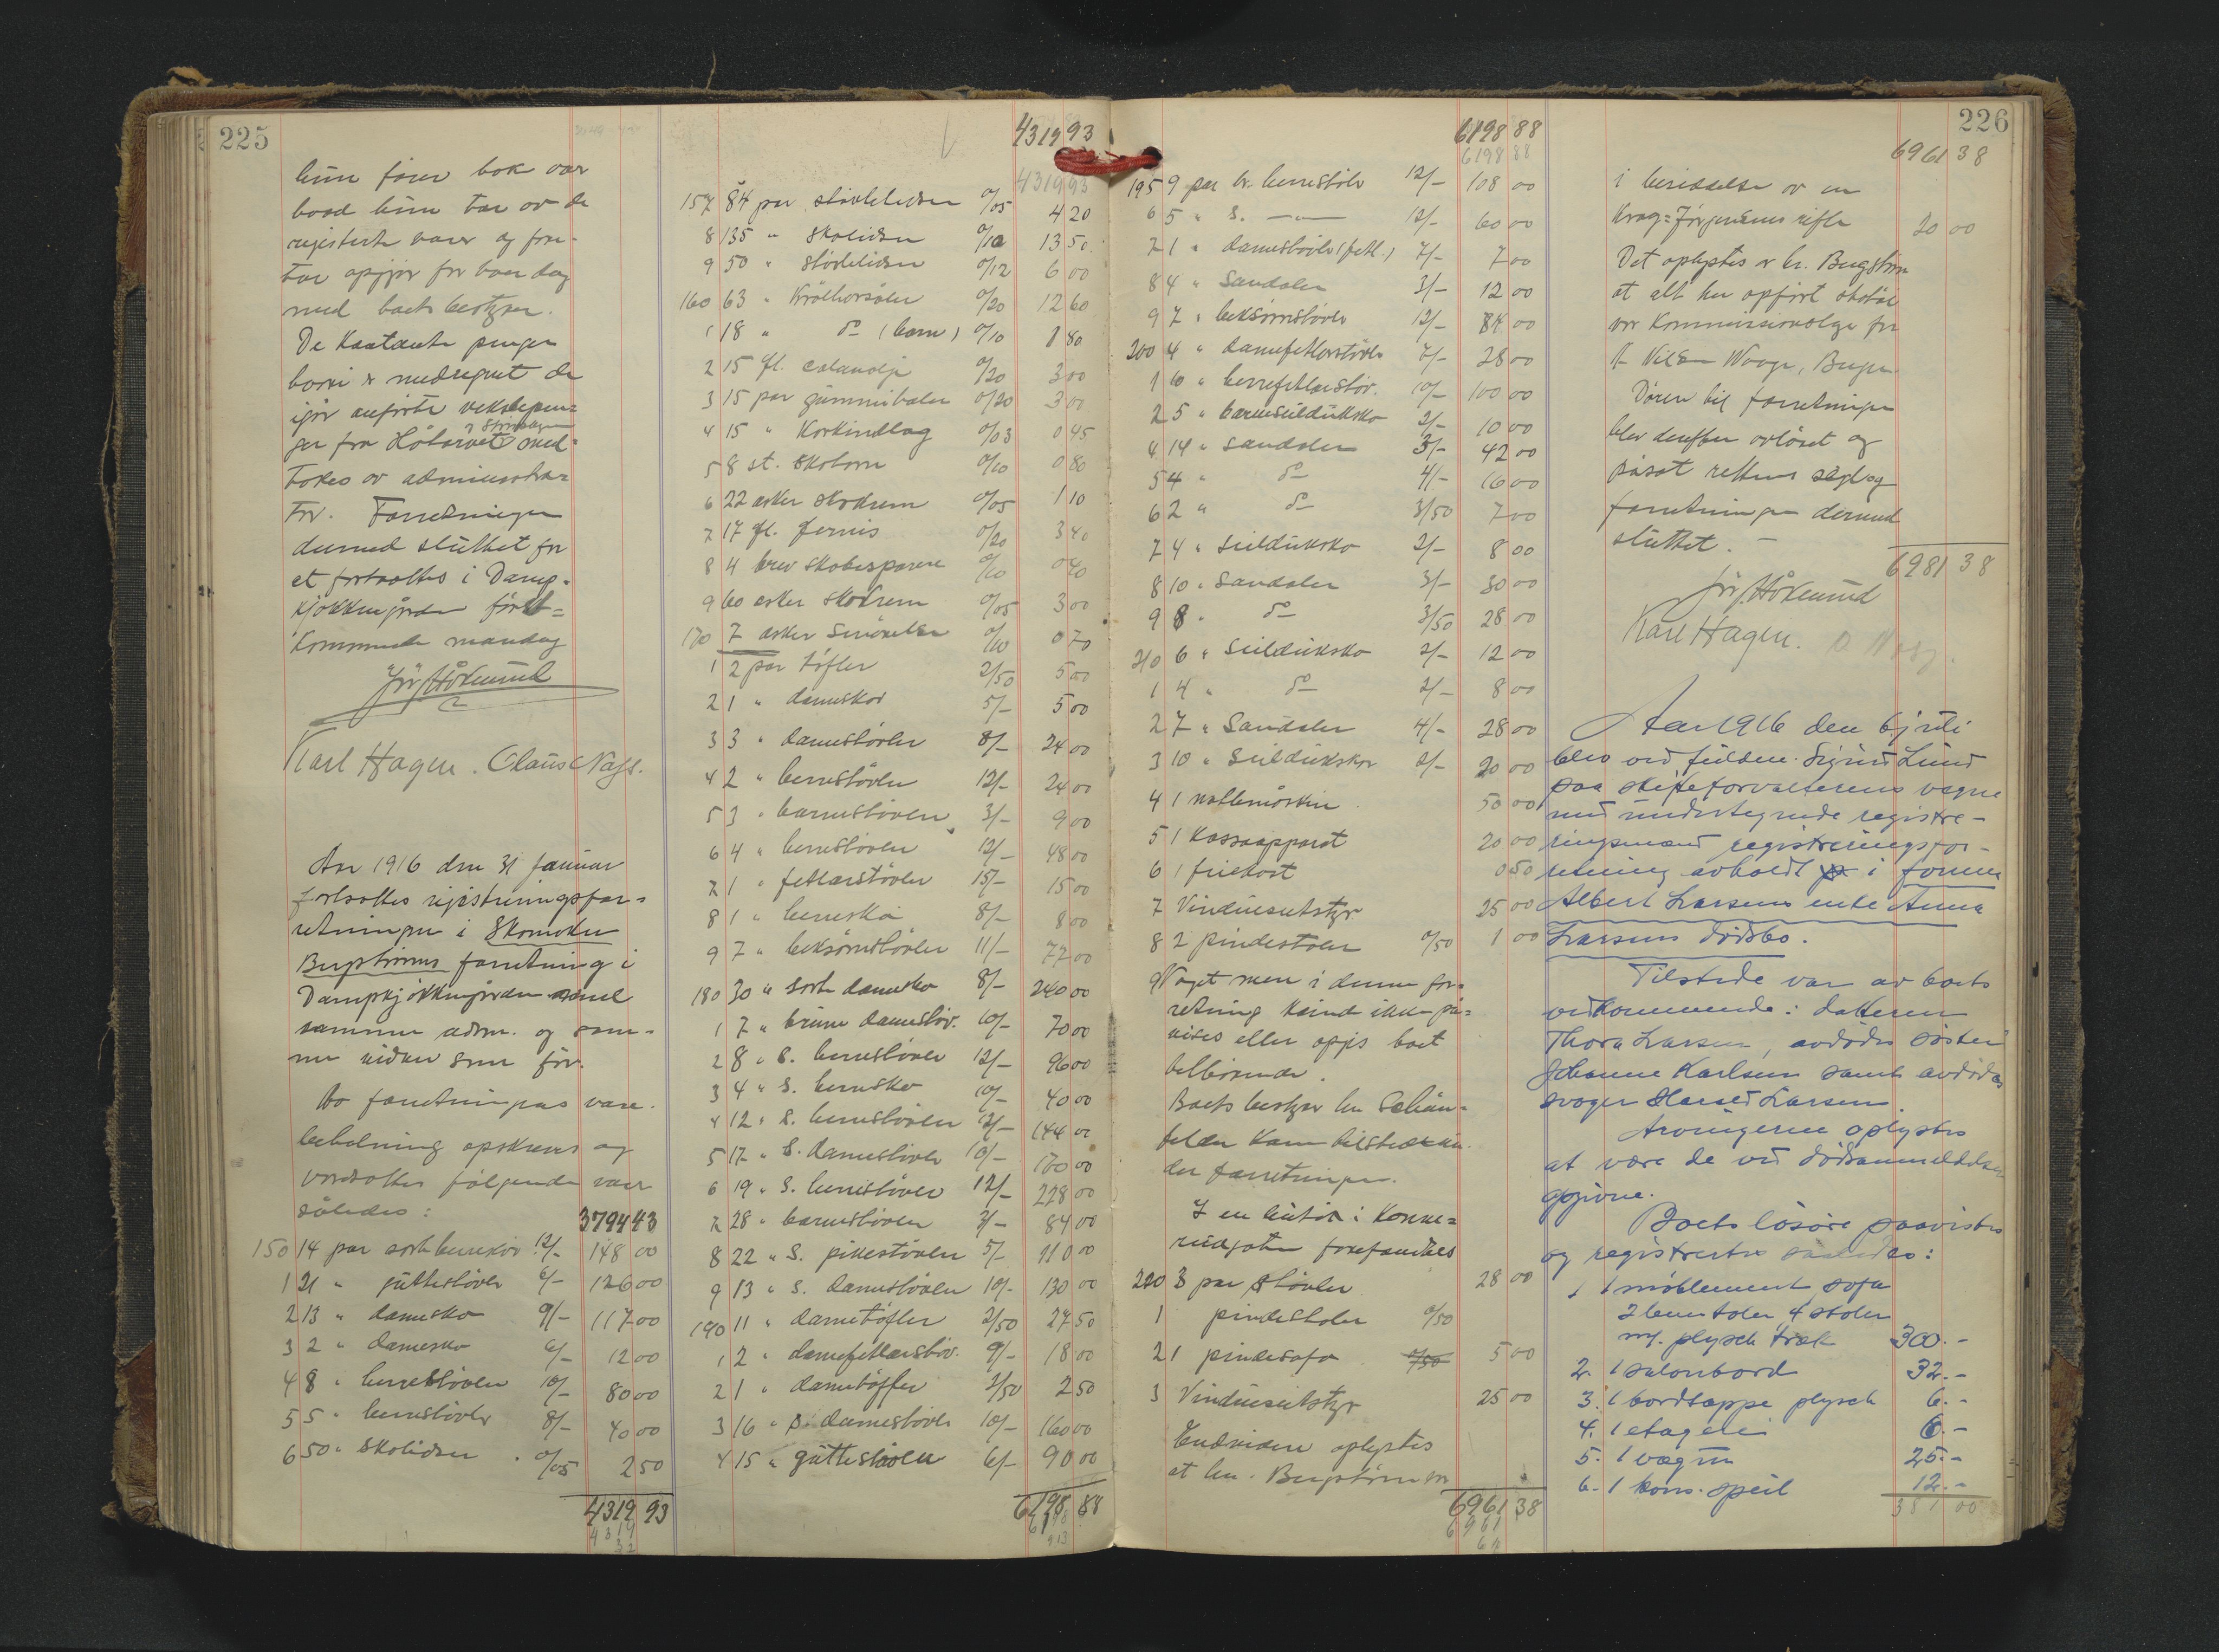 225
hun fører bok over
hvad hun tar av de
registrerte varer og fore-
tar opgjør for hver dag
med boets bestyrer.
De kontante penger
er medregnet de
igår anførte vekslepen=
ger fra Hötorvet med-
tokes av administra=
tor. Forretningen
dermed sluttet for
at fortsættes i Damp-
kjøkkengården først=
kommende mandag
Karl Hagen. Claus Næss.
Aar 1916 den 31 januar
fortsattes registreringsfor=
retningen i Skomaker
Bergströms forretning i
Dampkjøkkengården med
samme adm. og sam-
me vidner som før.
Av forretningens vare-
beholdning opskreves og
verdsattes følgende varer
således:
379443
150 14 par sorte herresko 12/- 148 00
1 21 " guttestøvler 6/- 126 00
2 13 " damesko 9/- 117 00
3 2 " damesko 6/- 12 00
4 8 " herrestøvler 10/- 80 00
5 5 " herrestøvler 8/- 40 00
6 50 " skolisser 0/05 2 50
4319 93
4319 93
4319 93
157 84 par støvlelisser 0/05 4 20
8 135 " skolisser 0/10 13 50
9 50 " støvlelisser 0/12 6 00
160 63 " Krølhorsåler 0/20 12 60
1 18 " do (barn) 0/10 1 80
2 15 fl. 0/20 3 00
3 15 par gummihæler 0/20 3 00
4 15 " Korkindlæg 0/03 0 45
5 8 st. skohorn 0/10 0 80
6 22 æsker skokrem 0/05 1 10
7 17 fl. fernis 0/20 3 40
8 4 brev skobesparere 0/10 0 40
9 60 æsker skokrem 0/05 3 00
170 7 æsker 0/10 0 70
1 2 par tøfler 2/50 5 00
2 1 " damesko 5/- 5 00
3 3 " damestøvler 8/- 24 00
4 2 " herrestøvler 12/- 24 00
5 3 " barnestøvler 3/- 9 00
6 4 " herrestøvler 12/- 48 00
7 1 " fetlærstøvler 15/- 15 00
8 1 " herresko 8/- 8 00
9 7 " beksømstøvler 11/- 77 00
180 30 " sorte damesko 8/- 240 00
1 7 " brune damestøv. 10/- 70 00
2 8 " S. herrestøvler 12/- 96 00
3 4 " S. herresko 10/- 40 00
4 12 " S. herrestøvler 12/- 144 00
5 17 " S. damestøvler 10/- 170 00
6 19 " S. herrestøvler 12/- 228 00
7 28 " barnestøvler 3/- 84 00
8 22 " S. pikestøvler 5/- 110 00
9 13 " S. damestøvler 10/- 130 00
190 11 " dametøfler 2/50 27 50
1 2 " damefetlærstøv. 9/- 18 00
2 1 " dametøfler 2/50 2 50
3 16 " S. damestøvler 10/- 160 00
4 15 " guttestøvler 6/- 90 00
6198 88
6198 88
6198 88
195 9 par br. herrestøvler 12/- 108 00
6 5 " S. —"— 12/- 60 00
7 1 " damestøvler (fetl.) 7/- 7 00
8 4 " Sandaler 3/- 12 00
9 7 " beksømstøvler 12/- 84 00
200 4 " damefetlærstøvler 7/- 28 00
1 10 " herrefetlærstøv. 10/- 100 00
2 5 " barneseilduksko 2/- 10 00
4 14 " sandaler 3/- 42 00
5 4 " do 4/- 16 00
6 2 " do 3/50 7 00
7 4 " seilduksko 2/- 8 00
8 10 " Sandaler 3/- 30 00
9 8 " do 3/50 28 00
210 6 " seilduksko 2/- 12 00
1 4 " do 2/- 8 00
2 7 " Sandaler 4/- 28 00
3 10 " seilduksko 2/- 20 00
4 1 50 00
5 1 Kassaapparat 20 00
6 1 friekost 0 50
7 Vinduesutstyr 25 00
8 2 pindestoler 0/50 1 00
Noget mere i denne for=
retning kunde ikke på=
vises eller opgis boet
tilhørende.
Boets bestyrer hr.
kom tilstede un-
der forretningen.
I en butik i Konne=
rudgaten forefandtes
220 3 par støvler 28 00
1 pindestoler 0/50
2 1 pindesofa 0/50 5 00
3 Vinduesutstyr 25 00
Endvidere oplystes
at hr. Bergström var
6961 38
6961
226
6961 38
i besiddelse av en
Krag=Jørgensens rifle 20 00
Det oplystes av hr. Bergström
at alt her opført skotøi
var Kommissionslager for
Døren til forretningen
blev derefter avlåset og
påsat rettens segl og
forretningen dermed
sluttet. —
6981 38
Karl Hagen.
Aar 1916 den 6 juli
blev ved fuldm. Sigurd Lund
paa skifteforvalterens vegne
med undertegnede registre-
ringsmænd registreringsfor-
retning avholdt i formu
Albert Larsens enke Anna
Larsens dødsbo.
Tilstede var av boets
vedkommende: datteren
Thora Larsen, avdødes søster
Johanne Karlsen samt avdødes
svoger Larsen.
Arvingerne oplystes
at være de ved dødsanmeldelsen
opgivne.
Boets løsøre paavistes
og registrertes saaledes:
1 1 møblement sofa
2 lenestoler, 4 stoler
m. plysch træk 300.-
2. 1 salonbord 32.-
3. 1 bordteppe plysch 6.-
4. 1 etagere 6.-
5. 1 vægur 25.-
6. 1 kons. speil 12.-
381 00